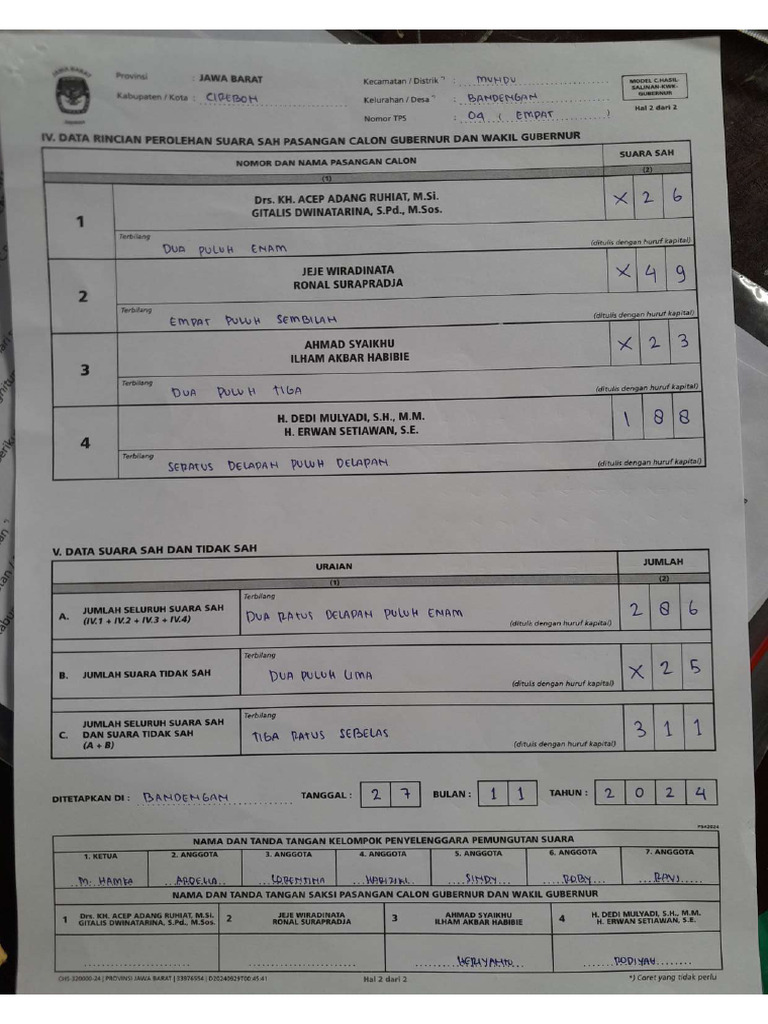 JAWA BARAT
Provinsi : JAWA BARAT
Kabupaten / Kota : CIREBON
Kecamatan / Distrik *) : MUNDU
Kelurahan / Desa *) : BANDENGAN
Nomor TPS : 04 ( EMPAT )
MODEL C.HASIL-
SALINAN-KWK-
GUBERNUR
Hal 2 dari 2
IV. DATA RINCIAN PEROLEHAN SUARA SAH PASANGAN CALON GUBERNUR DAN WAKIL GUBERNUR
NOMOR DAN NAMA PASANGAN CALON SUARA SAH
(1) (2)
1 Drs. KH. ACEP ADANG RUHIAT, M.Si. X 2 6
GITALIS DWINATARINA, S.Pd., M.Sos.
Terbilang
DUA PULUH ENAM (ditulis dengan huruf kapital)
2 JEJE WIRADINATA X 4 9
RONAL SURAPRADJA
Terbilang
EMPAT PULUH SEMBILAN (ditulis dengan huruf kapital)
3 AHMAD SYAIKHU X 2 3
ILHAM AKBAR HABIBIE
Terbilang
DUA PULUH TIGA (ditulis dengan huruf kapital)
4 H. DEDI MULYADI, S.H., M.M. 1 8 8
H. ERWAN SETIAWAN, S.E.
Terbilang
SERATUS DELAPAN PULUH DELAPAN (ditulis dengan huruf kapital)
V. DATA SUARA SAH DAN TIDAK SAH
URAIAN JUMLAH
(1) (2)
A. JUMLAH SELURUH SUARA SAH (IV.1 + IV.2 + IV.3 + IV.4) 2 8 6
Terbilang
DUA RATUS DELAPAN PULUH ENAM (ditulis dengan huruf kapital)
B. JUMLAH SUARA TIDAK SAH X 2 5
Terbilang
DUA PULUH LIMA (ditulis dengan huruf kapital)
C. JUMLAH SELURUH SUARA SAH DAN SUARA TIDAK SAH (A + B) 3 1 1
Terbilang
TIGA RATUS SEBELAS (ditulis dengan huruf kapital)
DITETAPKAN DI : BANDENGAN TANGGAL : 2 7 BULAN : 1 1 TAHUN : 2 0 2 4
NAMA DAN TANDA TANGAN KELOMPOK PENYELENGGARA PEMUNGUTAN SUARA
1. KETUA 2. ANGGOTA 3. ANGGOTA 4. ANGGOTA 5. ANGGOTA 6. ANGGOTA 7. ANGGOTA
M. HAMKA ARDELIA LORENTINA SINDY ROBY
NAMA DAN TANDA TANGAN SAKSI PASANGAN CALON GUBERNUR DAN WAKIL GUBERNUR
1 Drs. KH. ACEP ADANG RUHIAT, M.Si. 2 JEJE WIRADINATA 3 AHMAD SYAIKHU 4 H. DEDI MULYADI, S.H., M.M.
GITALIS DWINATARINA, S.Pd., M.Sos. RONAL SURAPRADJA ILHAM AKBAR HABIBIE H. ERWAN SETIAWAN, S.E.
HERIYANTO RODIYAH
CHS-320000-24 | PROVINSI JAWA BARAT | 33976554 | D20240929T00:45:41 Hal 2 dari 2 *) Coret yang tidak perlu